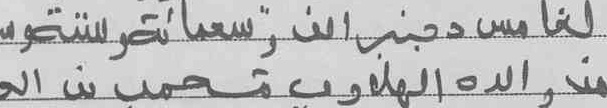 لخامس دجنبر الف وتسعمائة وستة و
من والده الهلاوي محمد بن ال